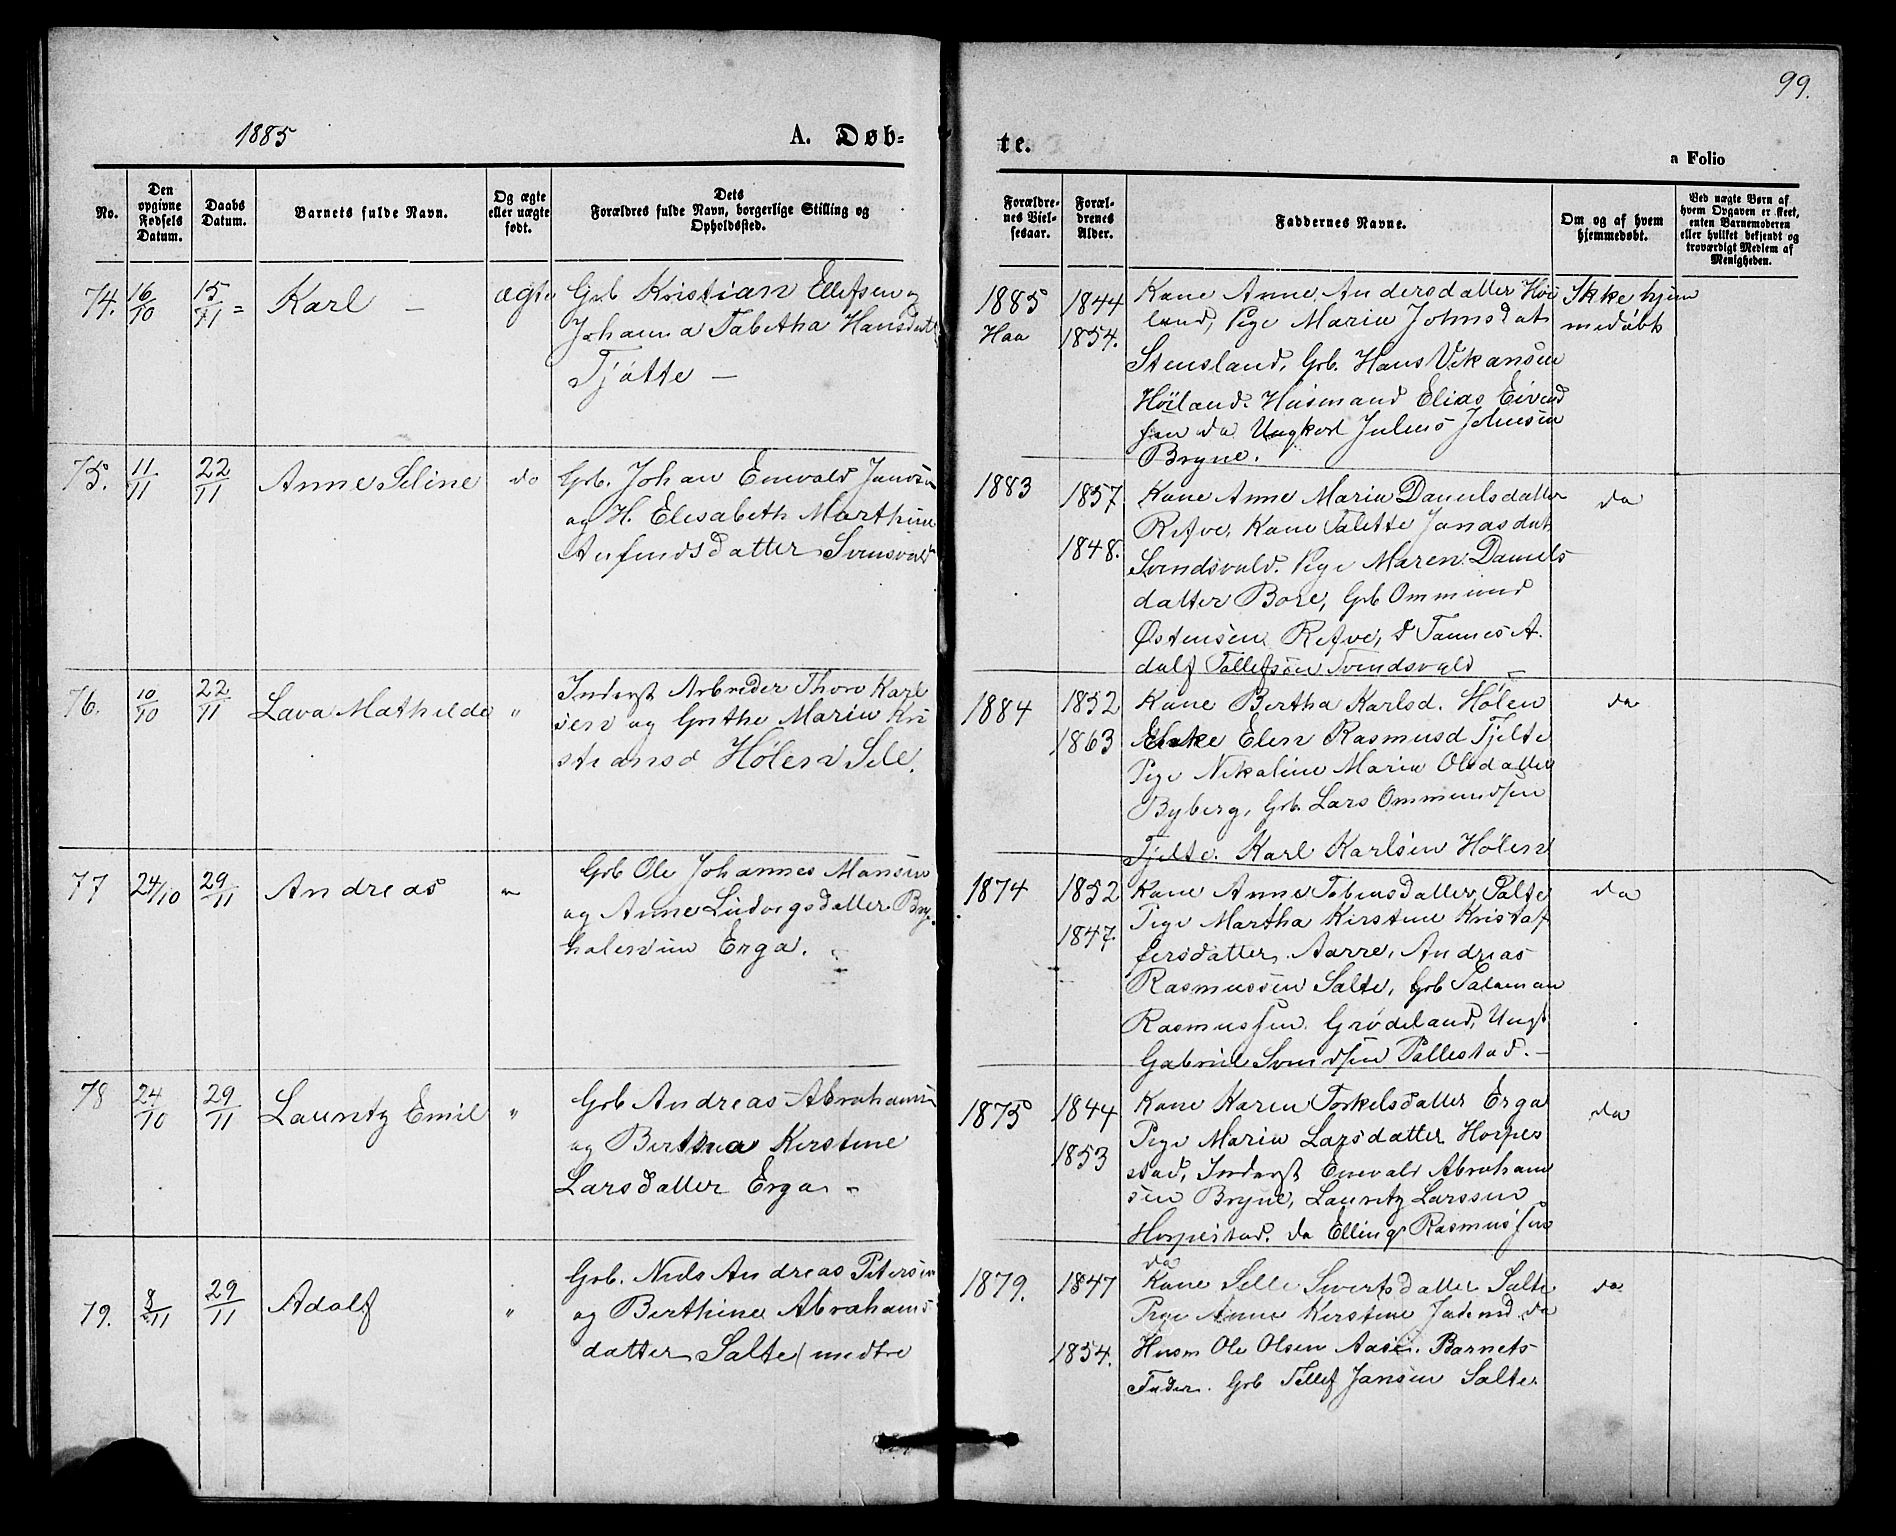 99.
1885
A. Døb-
te.
a Folio
No.
Den opgivne Fødsels Datum.
Daabs Datum.
Barnets fulde Navn.
Og ægte eller uægte født.
Dets Forældres fulde Navn, borgerlige Stilling og Opholdssted.
Forældrenes Vielsesaar.
Forældrenes Alder.
Faddernes Navne.
Om og af hvem hjemmedøbt.
Ved uægte Børn af hvem Opgaven er skeet, enten Barnemoderen eller hvilket bekjendt og troværdigt Medlem af Menigheden.
74. 16/10 15/11 Karl – ægte
Grb Kristian Ellefsen og
Johanna Tabitha Hansdatt
Tjøtte –
1885 Haa
1844
1854.
Kone Anne Andersdatter Høi
land, Pige Maria Johnsdat
Stensland, Grb. Hans Vikansen
Høiland. Husmand Elias Eivind
sen do Ungkarl Julius Johnsen
Bryne.
Ikke hjem
medøbt
75. 11/11 22/11 Anne Seline do
Grb. Johan Enevald Jansen
og H. Elisabeth Marthine
Anfindsdatter Svinsvold
1883
1857
1848.
Kone Anne Maria Danielsdatter
Refve, Kone Talette Jonasdat
Svindsvold. Pige Maren Daniels
datter Bore, Grb Ommund
Østensen Refve, d Tønnes A.
dolf Tollefsen Svindsvold
do
76. 10/10 22/11 Lava Mathilde "
Inderst Arbeider Thore Karl
sen og Grethe Maria Kri
stiansd Hølen Sele.
1884
1852
1863
Kone Bertha Karlsd. Hølen
Enke Elen Rasmusd Tjelte
Pige Nikoline Maria Olsdatter
Byberg, Grb. Lars Ommundsen
Tjelte. Karl Karlsen Hølen
do
77 24/10 29/11 Andreas "
Grb Ole Johannes Monsen
og Anne Ludvigsdatter Bry
Erga.
1874
1852
1847.
Kone Anne Tobiasdatter Salte
Pige Martha Kirstine Kristof
fersdatter Aarre, Andreas
Rasmussen Salte, Grb Salomon
Rasmussen Grødeland, Ungk
Gabriel Svendsen Pollestad. –
do
78 24/10 29/11 Lauritz Emil "
Grb Andreas Abrahamsen
og Berthea Kirstine
Larsdatter Erga
1875
1844
1853
Kone Karen Torkelsdatter Erga
Pige Maria Larsdatter Horpe
stad, Inderst Enevald Abraham
sen Bryne, Lauritz Larssen
Horpestad. do Elling Rasmussen
do
do
79. 8/11 29/11 Adolf "
Grb. Niels Andreas Petersen
og Berthine Abrahams
datter Salte, medtre
1879.
1847
1854.
Kone Selle Sivertsdatter Salte
Pige Anne Kirstine do
Husm Ole Olsen Aase. Barnets
Fader. Grb Tollef Jansen Salte.
do